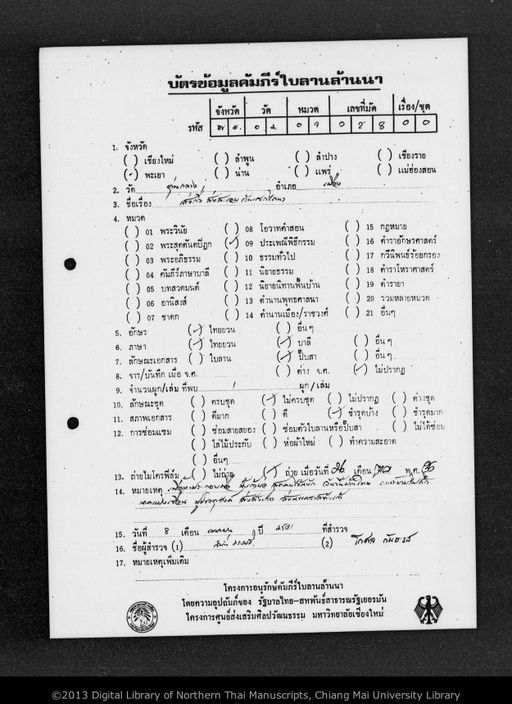 บัตรข้อมูลคัมภีร์ใบลานล้านนา
จังหวัด วัด หมวด เลขที่มัด เรื่อง/ชุด
รหัส 0 9 0 2 8 0 0
1. จังหวัด
( ) เชียงใหม่ ( ) ลำพูน ( ) ลำปาง ( ) เชียงราย
(✓) พะเยา ( ) น่าน ( ) แพร่ ( ) แม่ฮ่องสอน
2. วัด อำเภอ เมือง
3. ชื่อเรื่อง
4. หมวด
( ) 01 พระวินัย ( ) 08 โอวาทคำสอน ( ) 15 กฎหมาย
( ) 02 พระสุตตันตปิฎก (✓) 09 ประเพณีพิธีกรรม ( ) 16 ตำราอักษรศาสตร์
( ) 03 พระอภิธรรม ( ) 10 ธรรมทั่วไป ( ) 17 กวีนิพนธ์ร้อยกรอง
( ) 04 คัมภีร์ภาษาบาลี ( ) 11 นิยายธรรม ( ) 18 ตำราโหราศาสตร์
( ) 05 บทสวดมนต์ ( ) 12 นิยายนิทานพื้นบ้าน ( ) 19 ตำรายา
( ) 06 อานิสงส์ ( ) 13 ตำนานพุทธศาสนา ( ) 20 รวมหลายหมวด
( ) 07 ชาดก ( ) 14 ตำนานเมือง/ราชวงศ์ ( ) 21 อื่นๆ
5. อักษร (✓) ไทยยวน ( ) อื่นๆ
6. ภาษา (✓) ไทยยวน (✓) บาลี ( ) อื่นๆ
7. ลักษณะเอกสาร ( ) ใบลาน (✓) ปั๊บสา ( ) อื่นๆ
8. จาร/บันทึก เมื่อ จ.ศ. ( ) ต่าง จ.ศ. (✓) ไม่ปรากฏ
9. จำนวนผูก/เล่ม ที่พบ 1 ผูก/เล่ม
10. ลักษณะชุด ( ) ครบชุด (✓) ไม่ครบชุด ( ) ไม่ปรากฏ ( ) ต่างชุด
11. สภาพเอกสาร ( ) ดีมาก ( ) ดี (✓) ชำรุดบ้าง ( ) ชำรุดมาก
12. การซ่อมแซม ( ) ซ่อมสายสยอง ( ) ซ่อมตัวใบลานหรือปั๊บสา ( ) ไม่ได้ซ่อม
( ) ใส่ไม้ประกับ ( ) ห่อผ้าใหม่ ( ) ทำความสะอาด
( ) อื่นๆ
13. ถ่ายไมโครฟิล์ม ไม่ถ่าย (✓) ถ่าย เมื่อวันที่ 26 เดือน พ.ศ.
14. หมายเหตุ
15. วันที่ 8 เดือน ปี ที่สำรวจ
16. ชื่อผู้สำรวจ (1) (2)
17. หมายเหตุเพิ่มเติม
โครงการอนุรักษ์คัมภีร์ใบลานล้านนา
โดยความอุปถัมภ์ของ รัฐบาลไทย-สหพันธ์สาธารณรัฐเยอรมัน
โครงการศูนย์ส่งเสริมศิลปวัฒนธรรม มหาวิทยาลัยเชียงใหม่
©2013 Digital Library of Northern Thai Manuscripts, Chiang Mai University Library